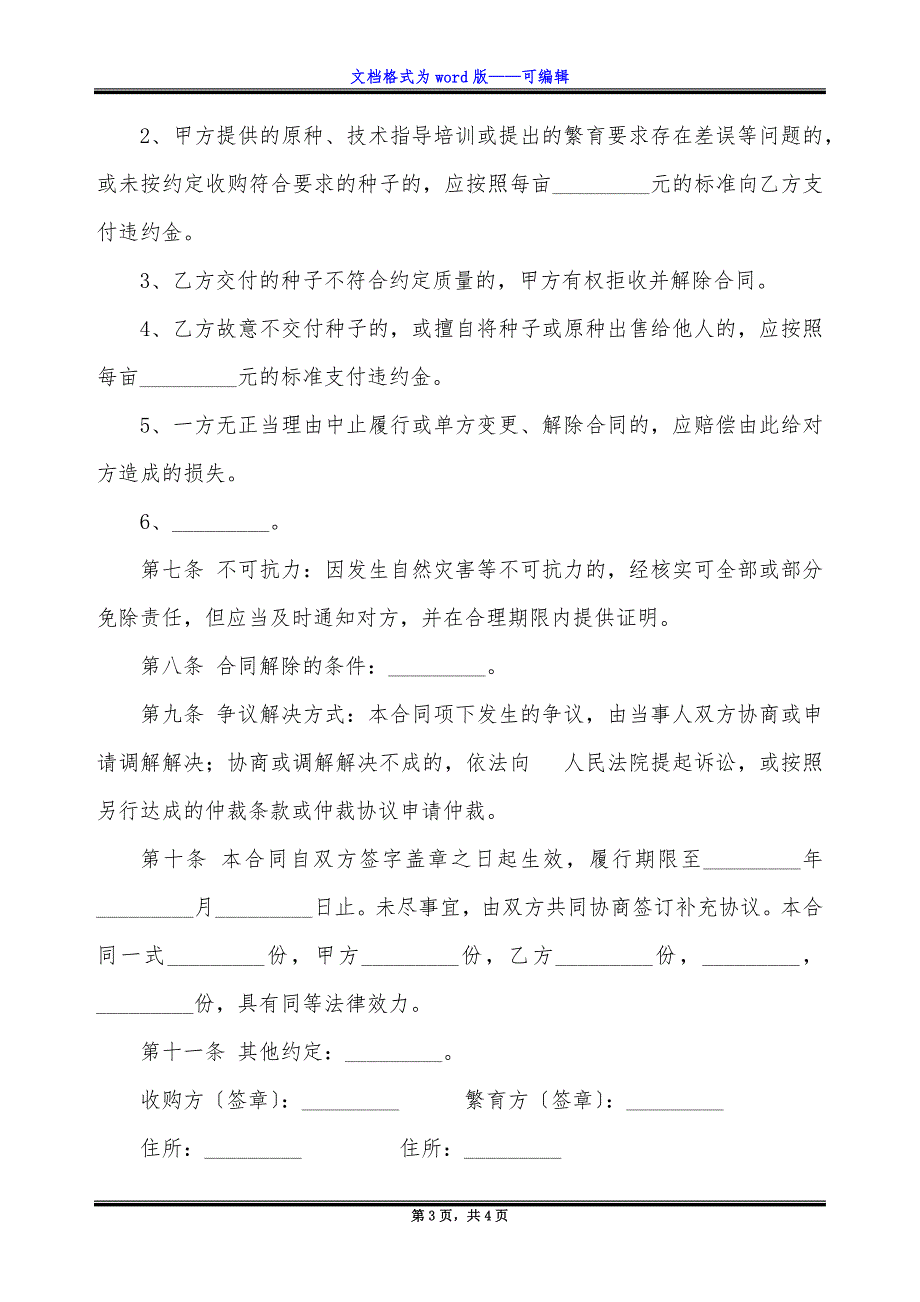 文档格式为 word 版——可编辑
2、甲方提供的原种、技术指导培训或提出的繁育要求存在差误等问题的，
或未按约定收购符合要求的种子的，应按照每亩_________元的标准向乙方支
付违约金。
3、乙方交付的种子不符合约定质量的，甲方有权拒收并解除合同。
4、乙方故意不交付种子的，或擅自将种子或原种出售给他人的，应按照
每亩_________元的标准支付违约金。
5、一方无正当理由中止履行或单方变更、解除合同的，应赔偿由此给对
方造成的损失。
6、_________。
第七条 不可抗力：因发生自然灾害等不可抗力的，经核实可全部或部分
免除责任，但应当及时通知对方，并在合理期限内提供证明。
第八条 合同解除的条件：_________。
第九条 争议解决方式：本合同项下发生的争议，由当事人双方协商或申
请调解解决；协商或调解解决不成的，依法向　 人民法院提起诉讼，或按照
另行达成的仲裁条款或仲裁协议申请仲裁。
第十条 本合同自双方签字盖章之日起生效，履行期限至_________年
_________月_________日止。未尽事宜，由双方共同协商签订补充协议。本合
同一式_________份，甲方_________份，乙方_________份，_________，
_________份，具有同等法律效力。
第十一条 其他约定：_________。
收购方〔签章〕：_________　　　繁育方〔签章〕：_________
住所：_________　　　　 住所：_________
第 3 页，共 4 页